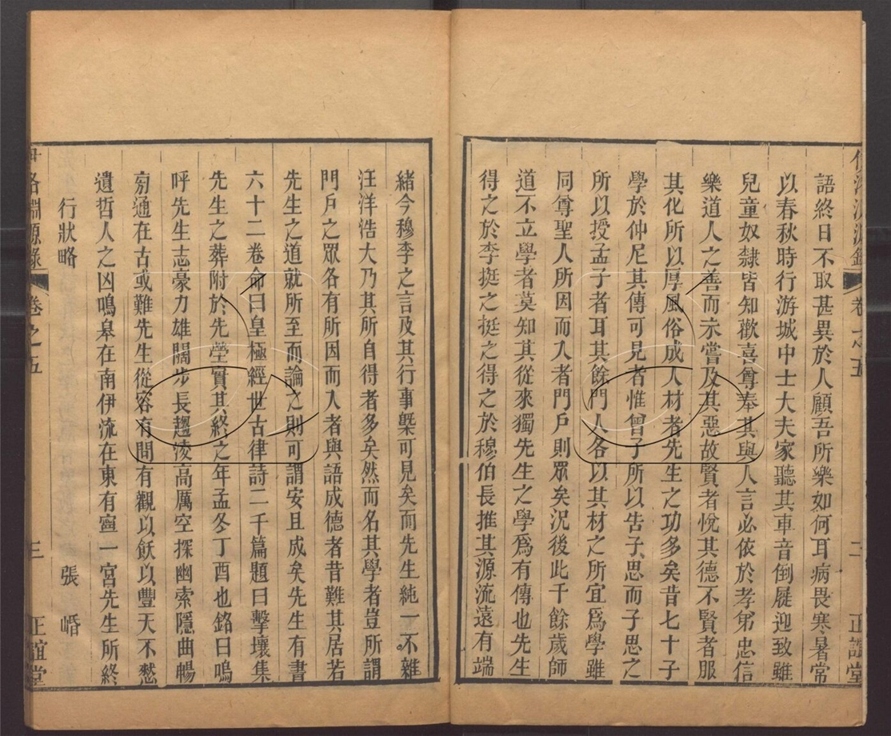 語終日不取甚異於人顧吾所樂如何耳病畏寒暑常
以春秋時行游城中士大夫家聽其車音倒屣迎致雖
兒童奴隸皆知歡喜尊奉其與人言必依於孝弟忠信
樂道人之善而未嘗及其惡故賢者悅其德不賢者服
其化所以厚風俗成人材者先生之功多矣昔七十子
學於仲尼其傳可見者惟曾子所以告子思而子思之
所以授孟子者耳其餘門人各以其材之所宜爲學雖
同尊聖人所因而入者門戶則眾矣況後此千餘歲師
道不立學者莫知其從來獨先生之學爲有傳也先生
得之於李挺之挺之得之於穆伯長推其源流遠有端
卷之五
二
正誼堂
緒今穆李之言及其行事槩可見矣而先生純一不雜
汪洋浩大乃其所自得者多矣然而名其學者豈所謂
門戶之眾各有所因而入者與語成德者昔難其居若
先生之道就所至而論之則可謂安且成矣先生有書
六十二卷命曰皇極經世古律詩二千篇題曰擊壤集
先生之葬附於先塋實其終之年孟冬丁酉也銘曰嗚
呼先生志豪力雄闊步長趨淩高厲空探幽索隱曲暢
旁通在古或難先生從容有問有觀以飫以豐天不憖
遺哲人之凶鳴皋在南伊流在東有寧一宮先生所終
行狀略 張㟭
伊洛淵源錄 卷之五 三 正誼堂